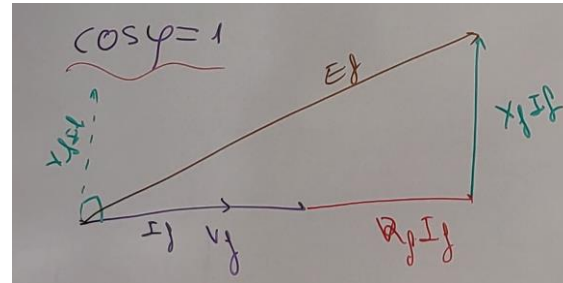 cosφ=1
Ef
XfIf
XfIf
If Vf
RfIf